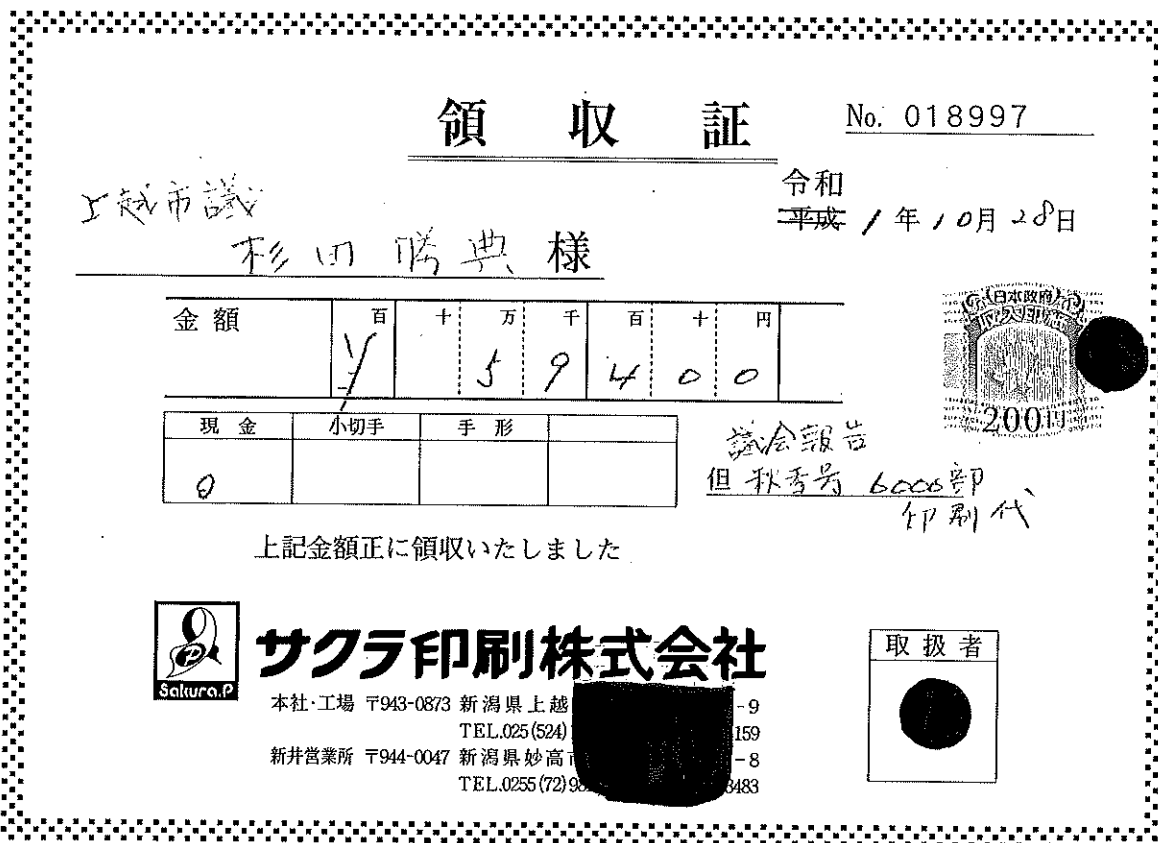 領収証
No. 018997
上越市議
杉田勝典様
令和
平成 1年10月28日
金額 百 十 万 千 百 十 円
¥ 5 9 4 0 0
現金 小切手 手形
0
日本政府
200円
議会報告
但 秋季号 6000部
印刷代
上記金額正に領収いたしました
Sakura.P
サクラ印刷株式会社
本社・工場 〒943-0873 新潟県上越 -9
TEL.025(524) 159
新井営業所 〒944-0047 新潟県妙高市 -8
TEL.0255(72)98 3483
取扱者